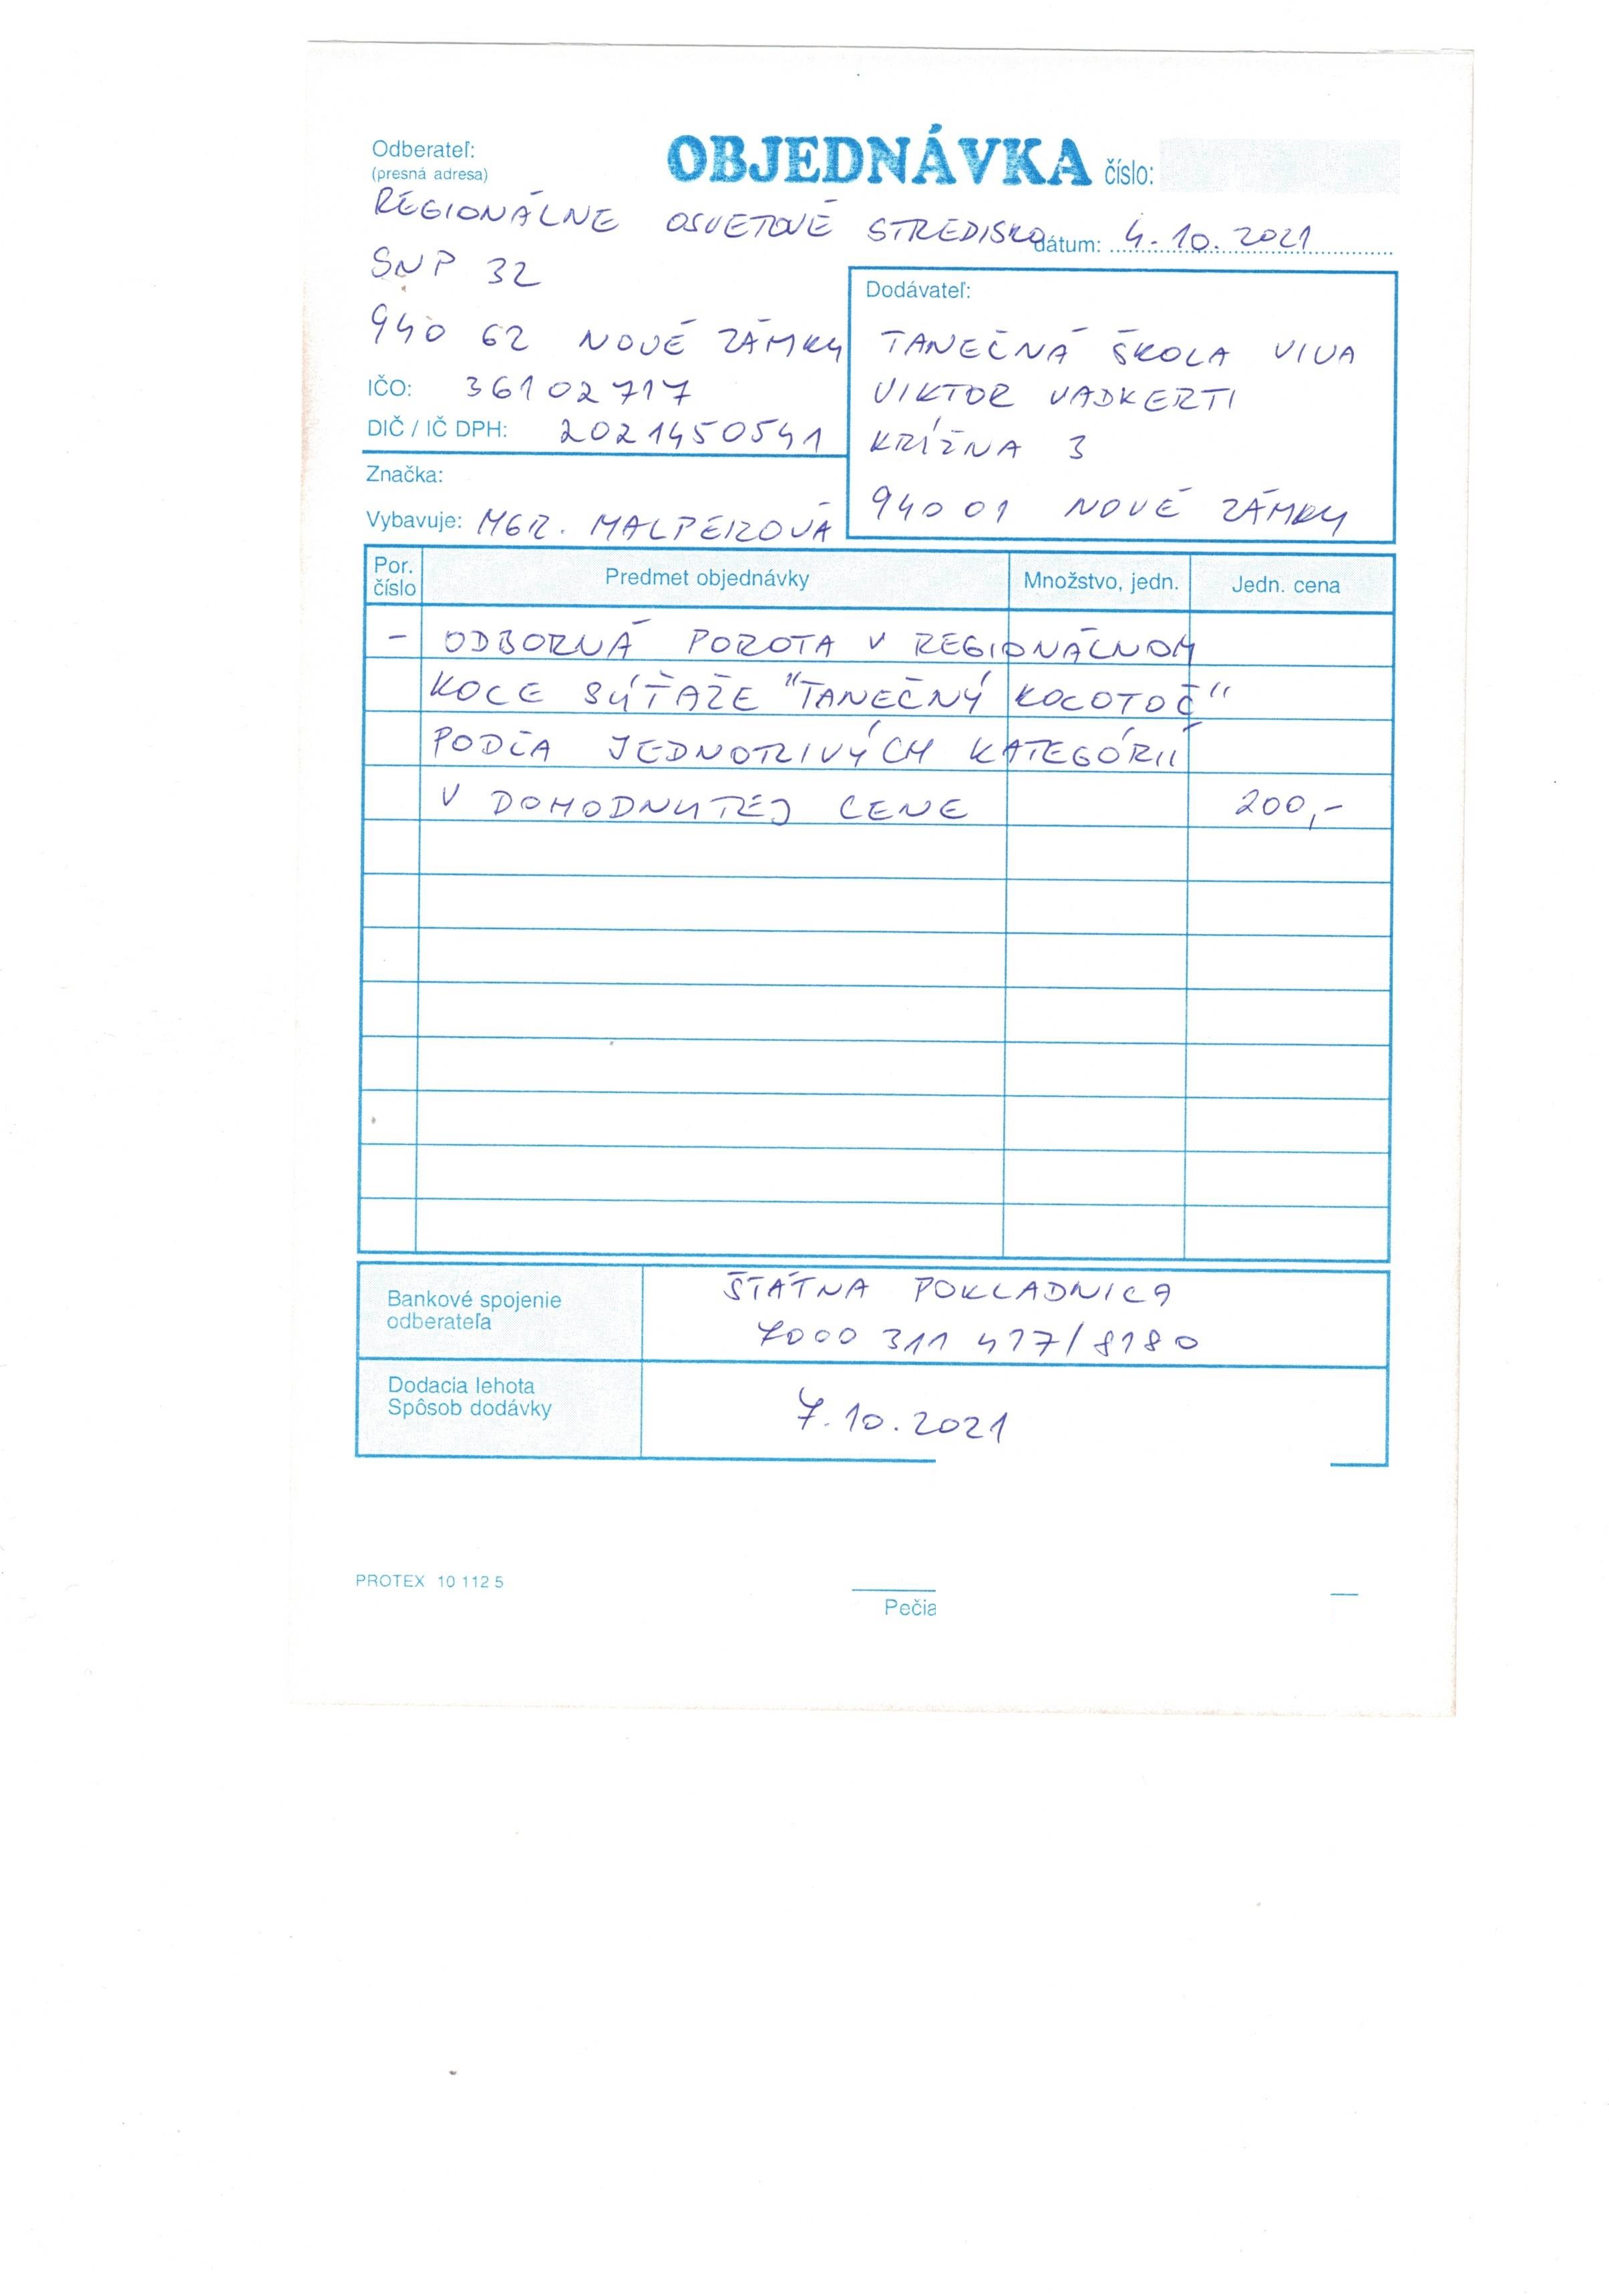 Odberateľ:
(presná adresa)
OBJEDNÁVKA číslo:
REGIONÁLNE OSVETOVÉ STREDISKO
dátum: 4.10.2021
SNP 32
940 62 NOVÉ ZÁMKY
IČO: 36102717
DIČ / IČ DPH: 2021450541
Značka:
Vybavuje: MGR. MALPEROVÁ
Dodávateľ:
TANEČNÁ ŠKOLA VIVA
VIKTOR VADKERTI
KRÍŽNA 3
940 01 NOVÉ ZÁMKY
Por. číslo Predmet objednávky Množstvo, jedn. Jedn. cena
- ODBORNÁ POROTA V REGIONÁLNOM
KOLE SÚŤAŽE "TANEČNÝ KOLOTOČ"
PODĽA JEDNOTLIVÝCH KATEGÓRII
V DOHODNUTEJ CENE 200,-
Bankové spojenie
odberateľa
ŠTÁTNA POKLADNICA
7000 311 477/8180
Dodacia lehota
Spôsob dodávky
7.10.2021
PROTEX 10 112 5
Pečia